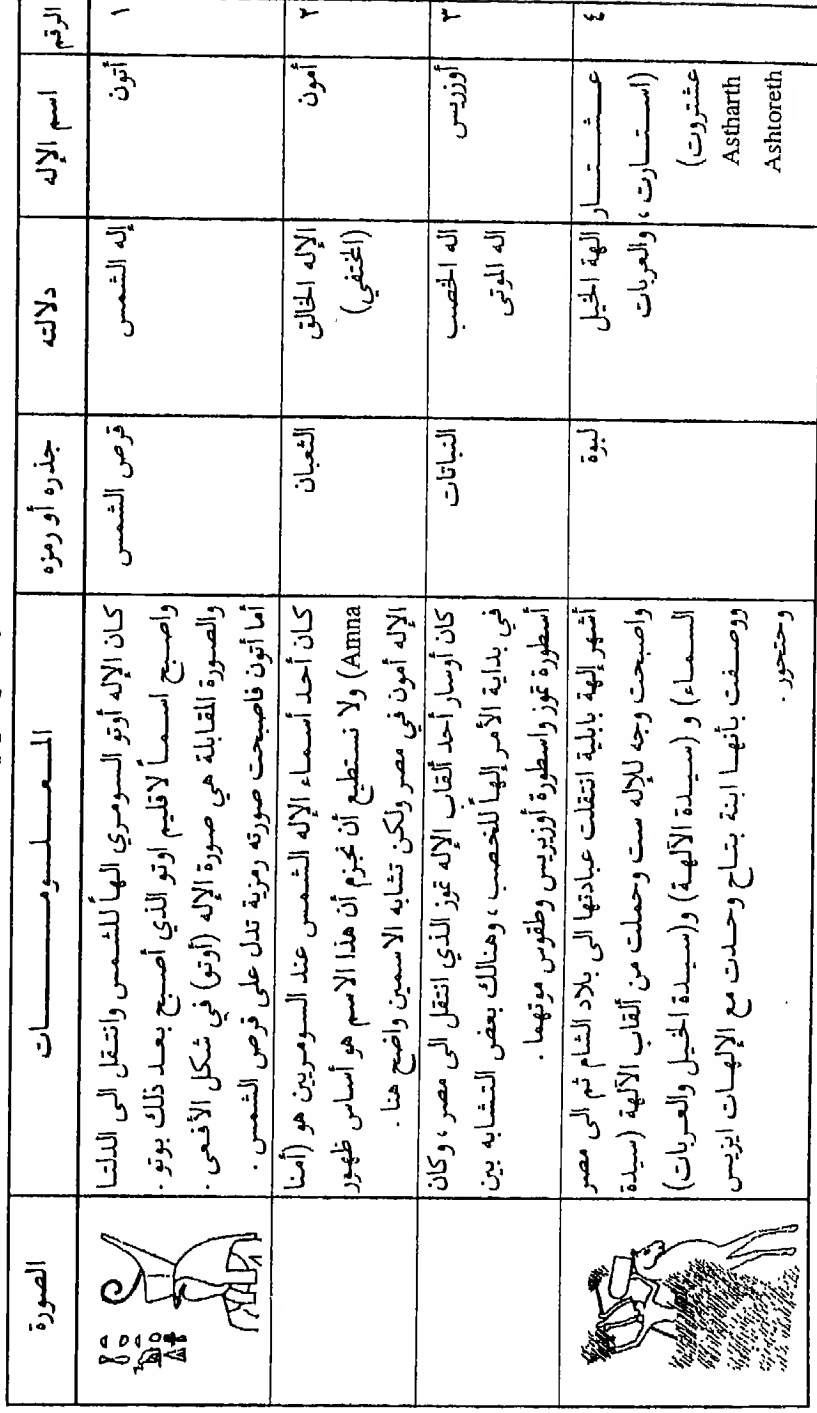 الرقم
اسم الإله
دلالته
جذره أو رمزه
المعلومات
الصورة
١
أتون
إله الشمس
قرص الشمس
كان الإله أوتو السومري الهاً للشمس وانتقل الى الدلتا
واصبح اسماً لاقليم اوتو الذي أصبح بعد ذلك بوتو.
والصورة المقابلة هي صورة الإله (أوتو) في شكل الأفعى.
أما أتون فاصبحت صورته رمزية تدل على قرص الشمس.
٢
أمون
الإله الخالق
(المختفي)
الثعبان
كان أحد أسماء الإله الشمس عند السومريين هو (أمنا
Amna) ولا نستطيع أن نجزم أن هذا الاسم هو أساس ظهور
الإله أمون في مصر ولكن تشابه الاسمين واضح هنا.
٣
أوزريس
اله الخصب
اله الموتى
النباتات
كان أوسار أحد ألقاب الإله تموز الذي انتقل الى مصر، وكان
في بداية الأمر إلهاً للخصب، وهنالك بعض التشابه بين
أسطورة تموز واسطورة أوزيريس وطقوس موتهما.
٤
عشتار
(استارت،
عشتروت)
Astharth
Ashtoreth
الهة الخيل
والعربات
لبوة
أشهر إلهة بابلية انتقلت عبادتها الى بلاد الشام ثم الى مصر
واصبحت وجه للإله ست وحملت من ألقاب الآلهة (سيدة
السماء) و (سيدة الآلهة) و(سيدة الخيل والعربات)
ووصفت بأنها ابنة بتاح وحدت مع الإلهات ايزيس
وحتحور.